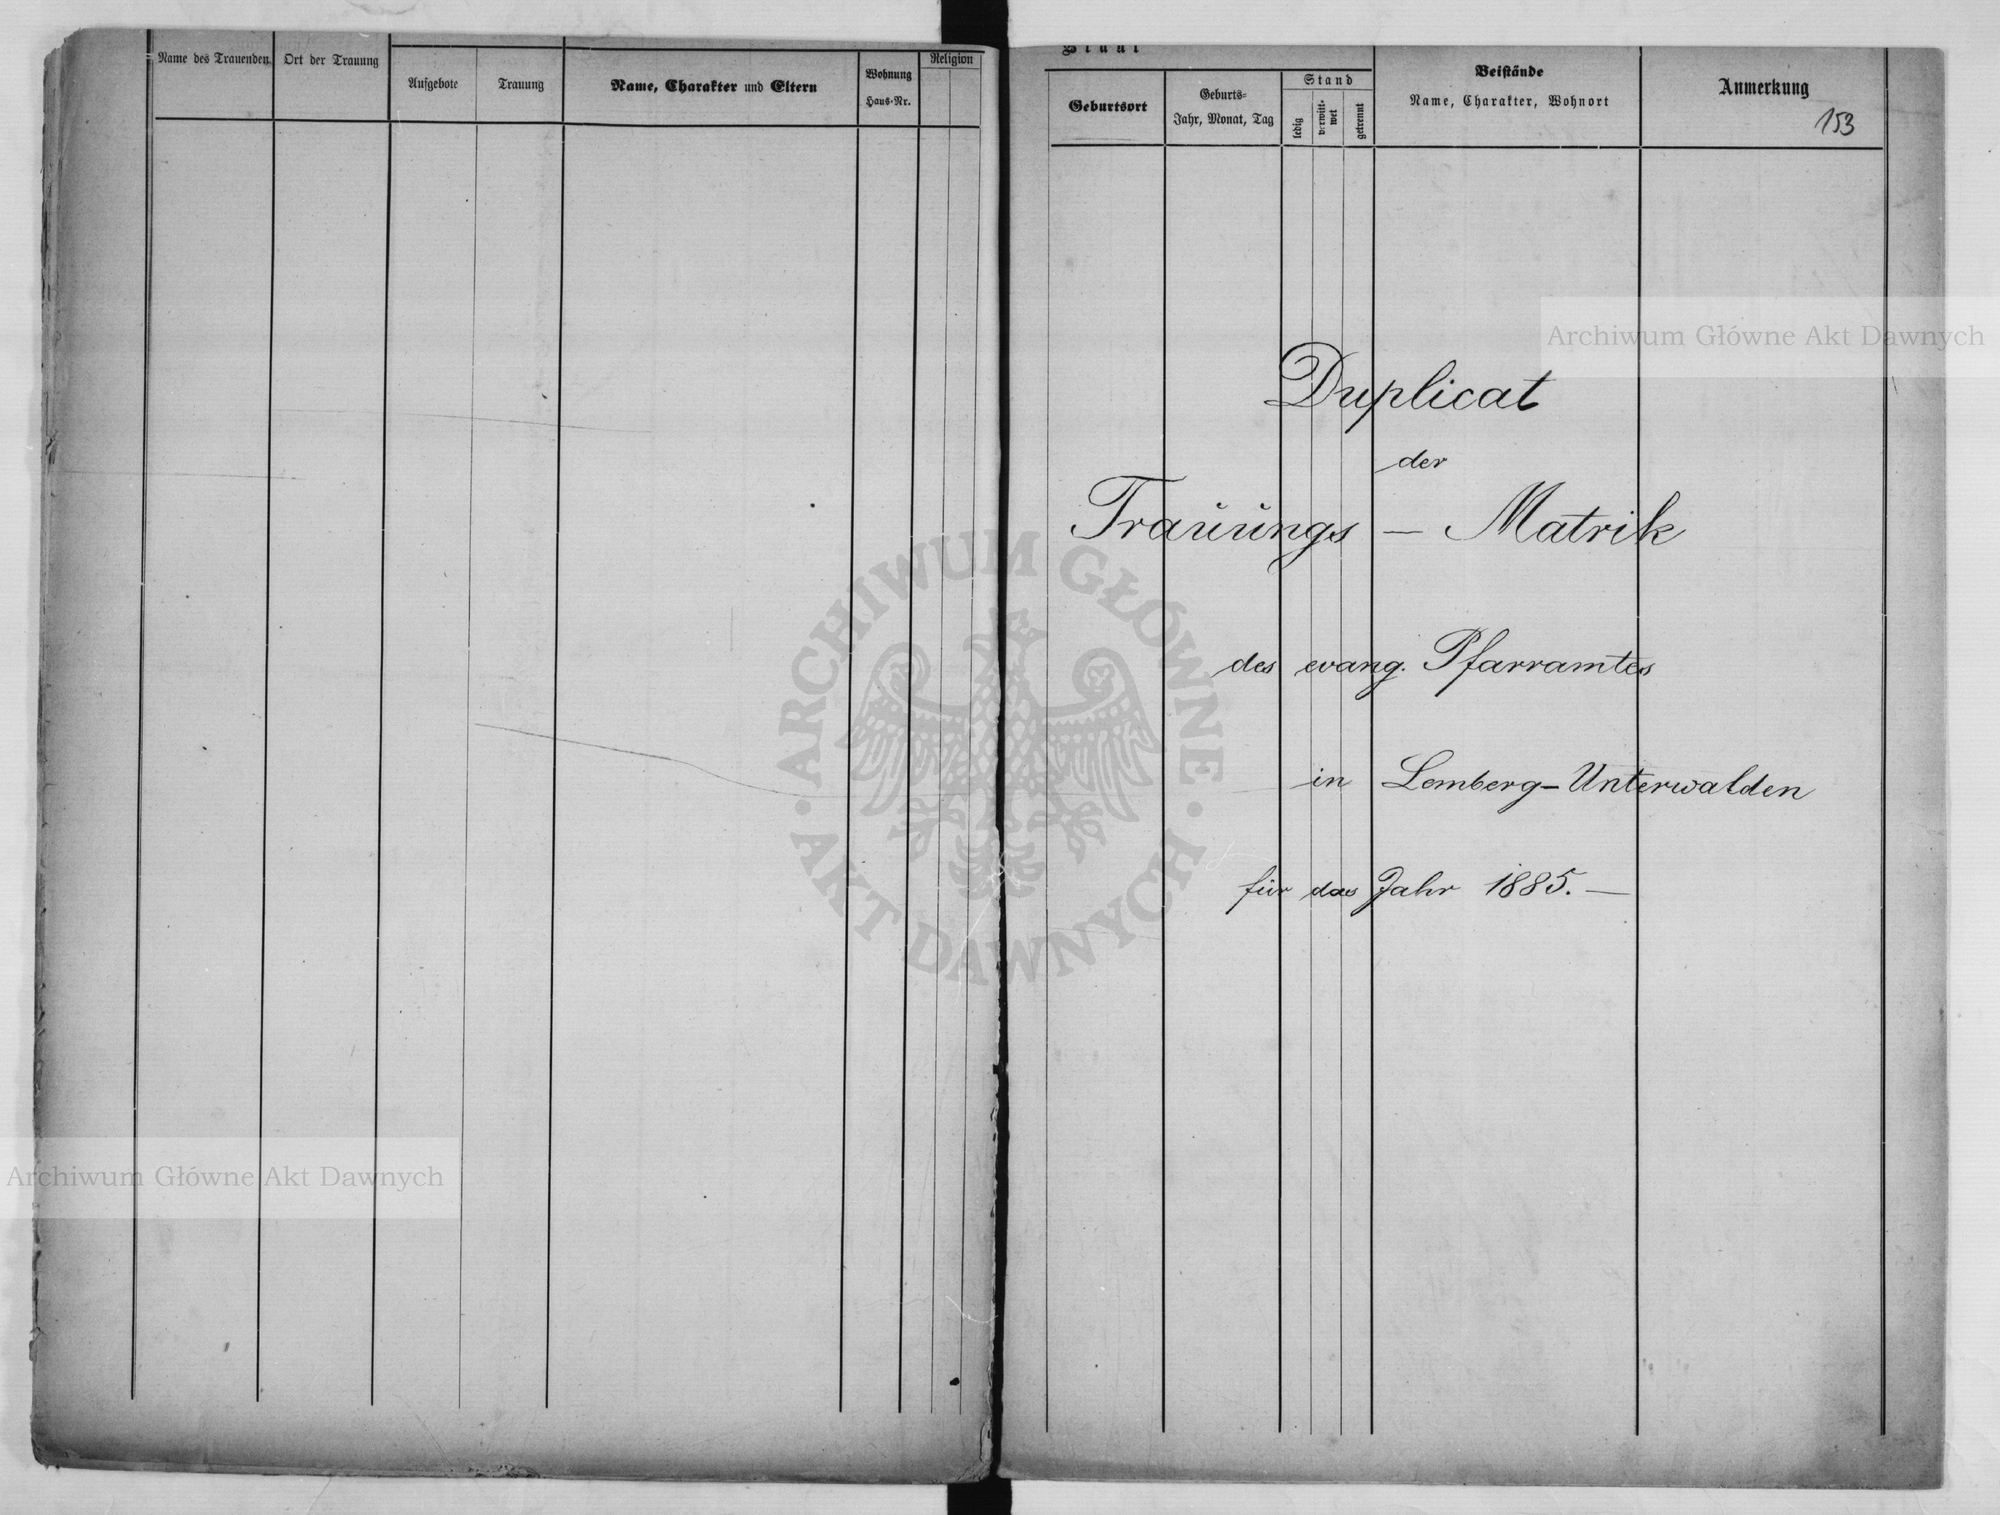 Name des Trauenden
Ort der Trauung
Aufgebote
Trauung
Name, Charakter und Eltern
Wohnung
Haus-Nr.
Religion
Geburtsort
Geburts-
Jahr, Monat, Tag
Stand
ledig
verwitt-
wet
getrennt
Beistände
Name, Charakter, Wohnort
Anmerkung
153
Duplicat
der
Trauungs – Matrik
des evang. Pfarramtes
in Lemberg-Unterwalden
für das Jahr 1885. —
Archiwum Główne Akt Dawnych
ARCHIWUM GŁÓWNE · AKT DAWNYCH ·
Archiwum Główne Akt Dawnych